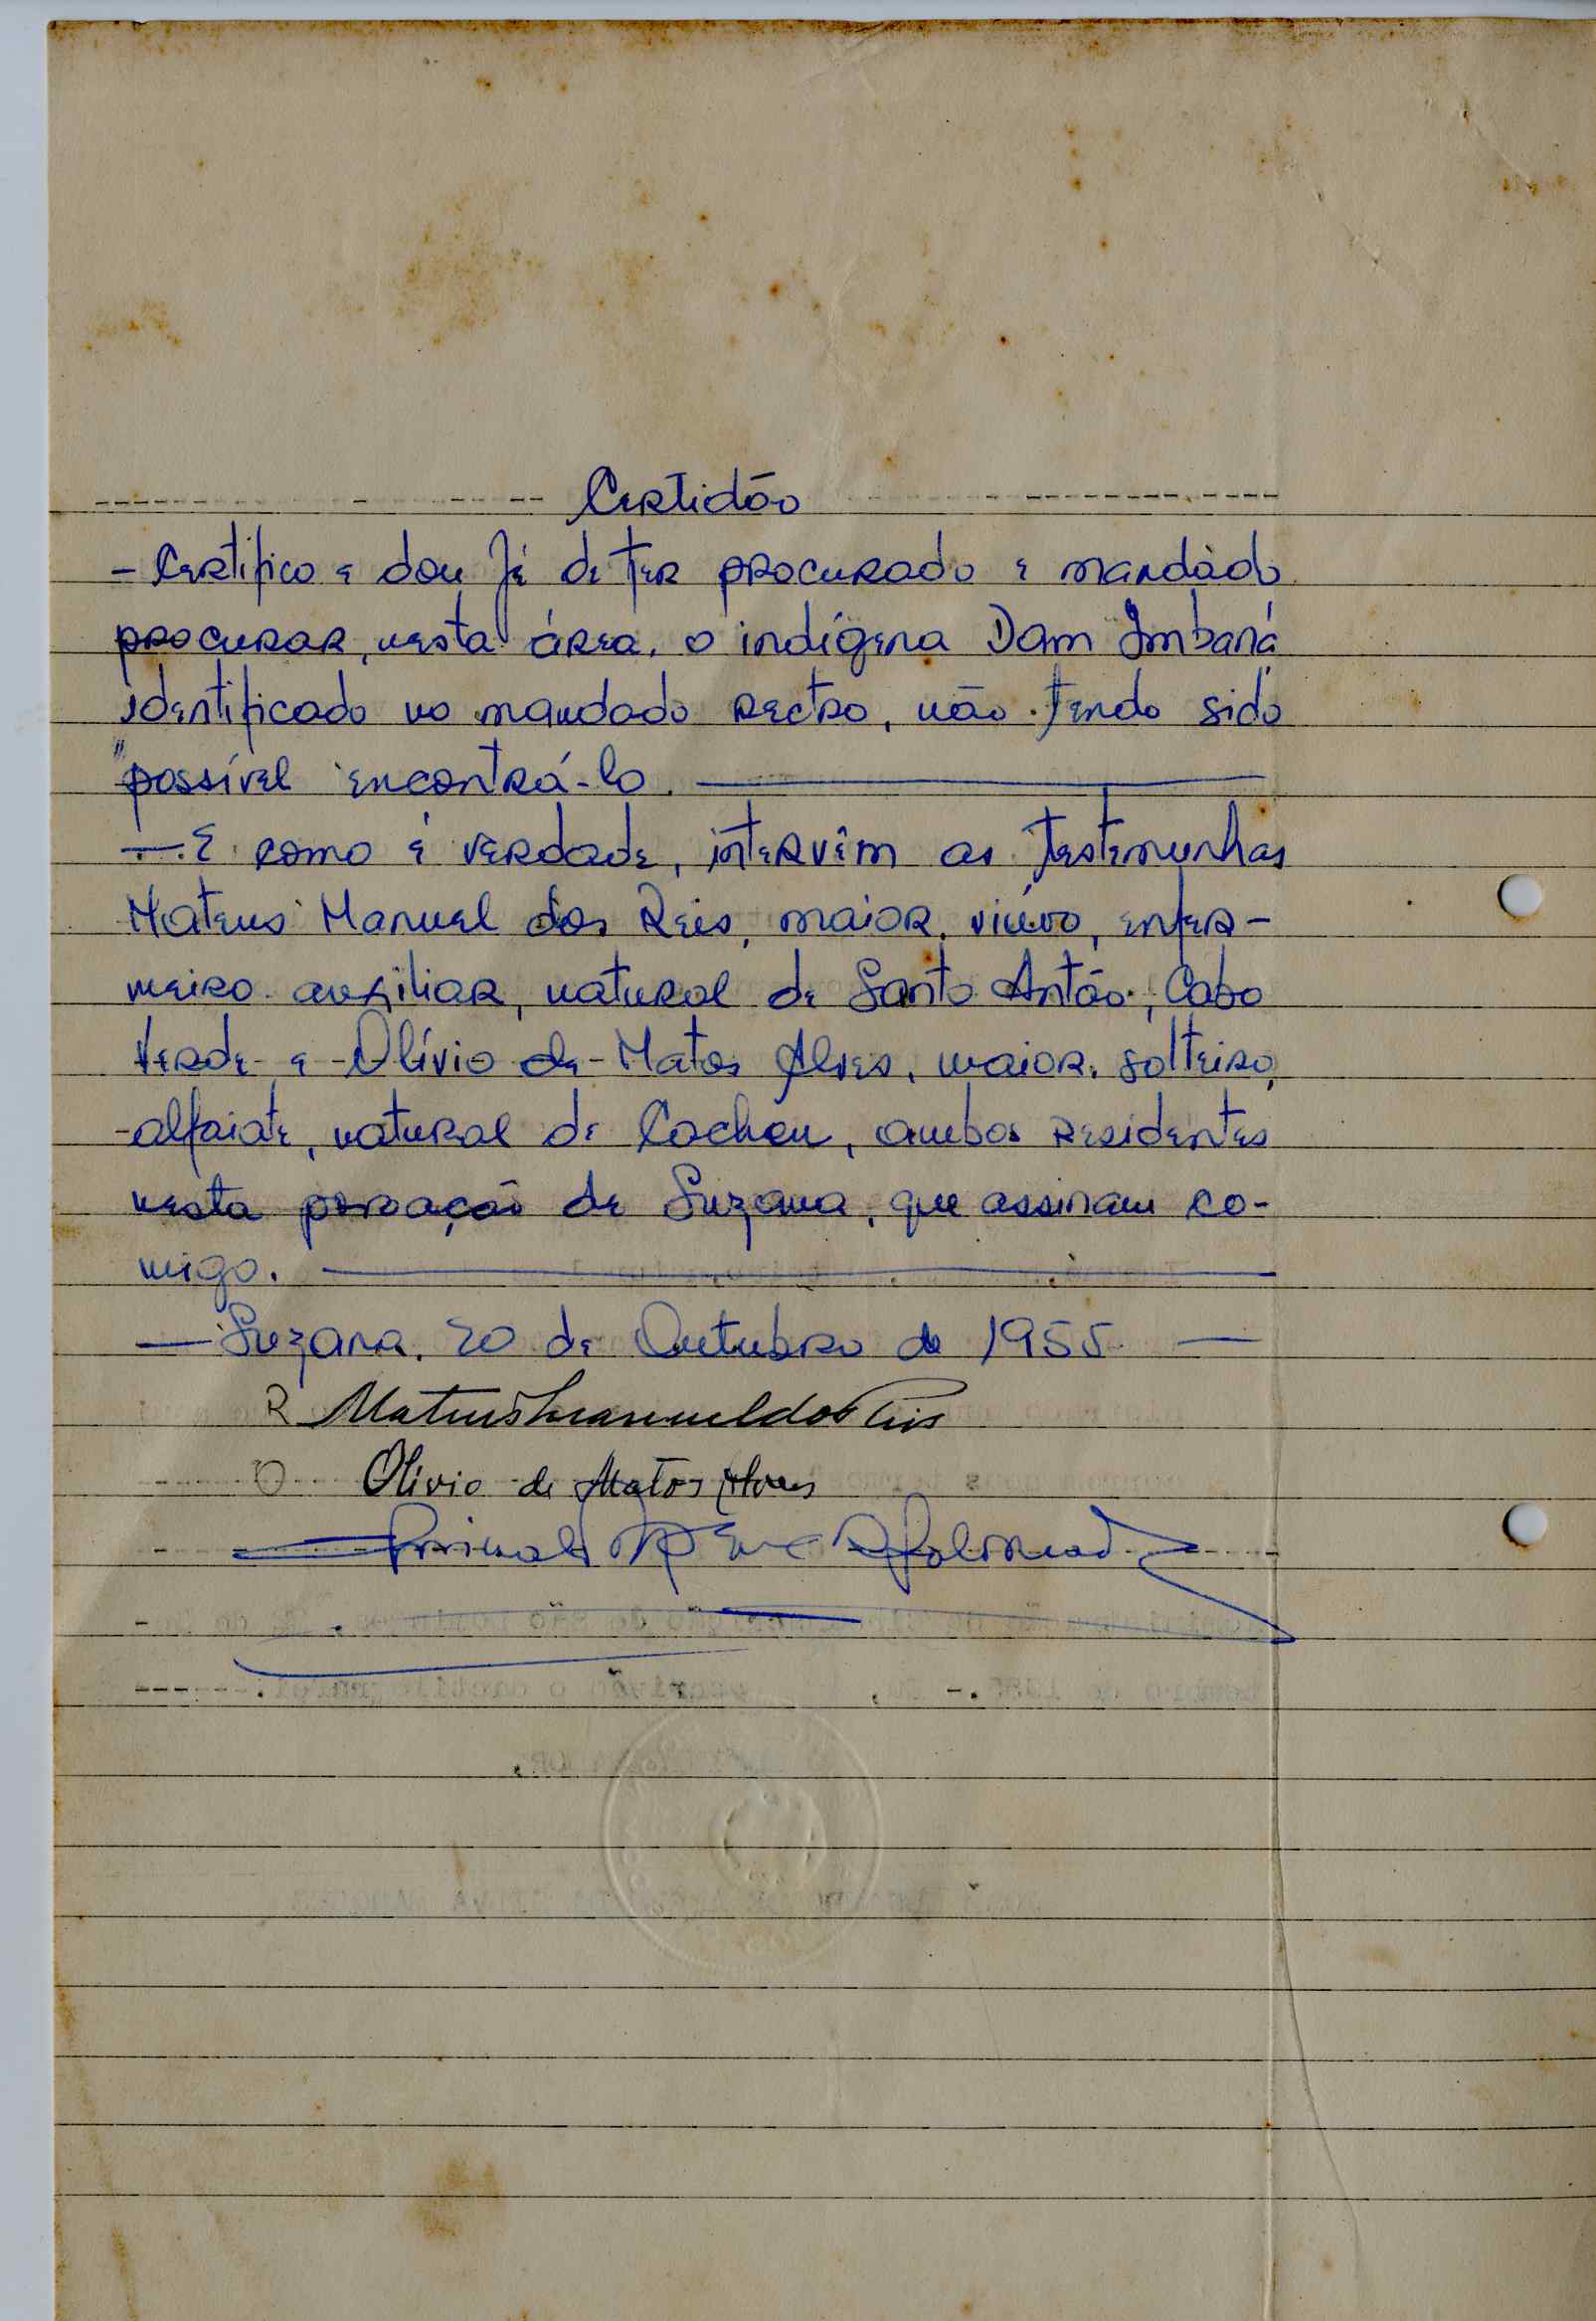 Certidão
- Certifico e dou fé de ter procurado e mandado
procurar, nesta área, o indígena Dam Imbaná
identificado no mandado rectro, não tendo sido
possível encontrá-lo.
— E como é verdade, intervêm as testemunhas
Mateus Manuel dos Reis, maior, viúvo, enfer-
meiro auxiliar, natural de Santo Antão, Cabo
Verde e Olívio de Matos Alves, maior, solteiro,
alfaiate, natural de Cacheu, ambos residentes
nesta povoação de Suzana, que assinam co-
migo.
— Suzana, 20 de Outubro de 1955. —
R Mateus Manuel dos Reis
O Olívio de Matos Alves